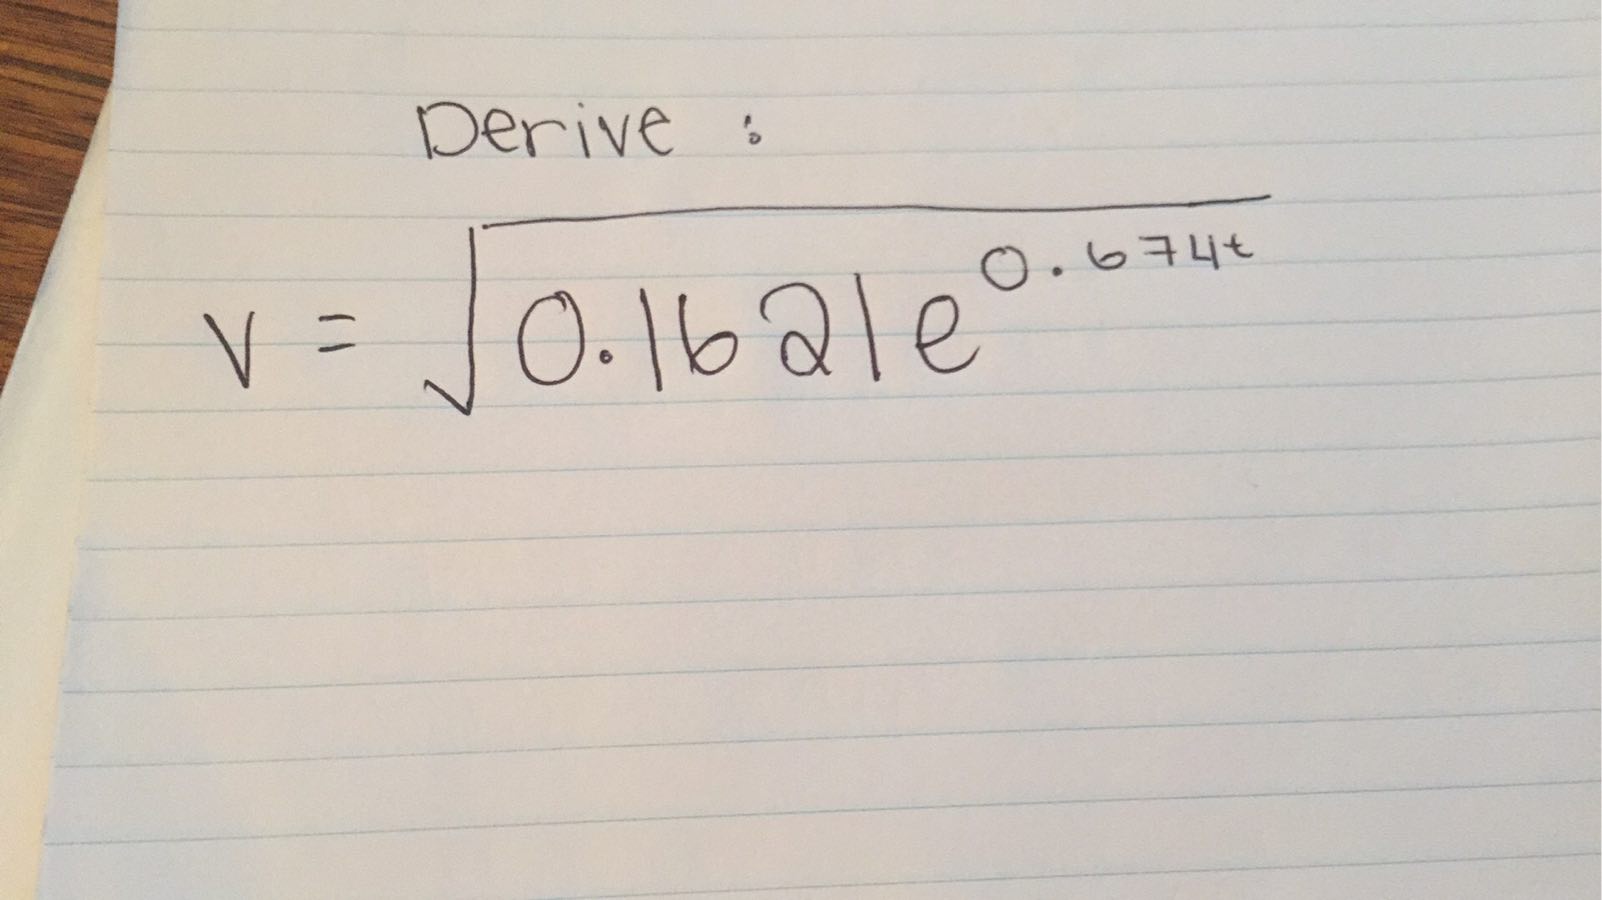 Derive :
v = √0.1621e^0.674t